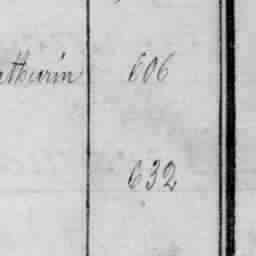 athurin 606
632